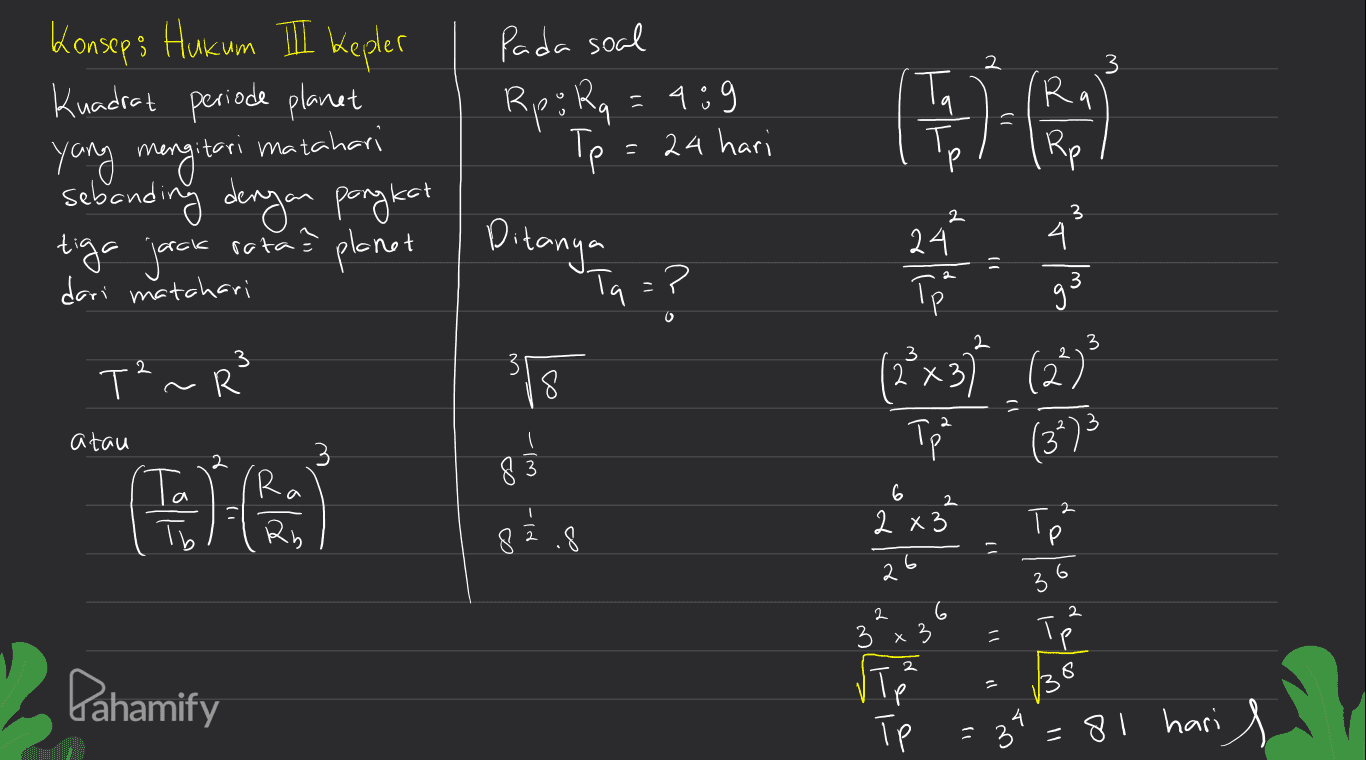 Konsep: Hukum III Kepler
Kuadrat periode planet
yang mengitari matahari
sebanding dengan pangkat
tiga jarak rata² planet
dari matahari
T² ~ R³
atau
(Ta/Tb)² = (Ra/Rb)³
Pada soal
Rp : Rq = 4 : 9
Tp = 24 hari
Ditanya
Tq = ?
³√8
8^(1/3)
8^(1/2) . 8
(Tq/Tp)² = (Rq/Rp)³
24²/Tp² = 4³/9³
(2³ x 3)²/Tp² = (2²)³/(3²)³
2⁶ x 3²/2⁶ = Tp²/3⁶
3² x 3⁶ = Tp²
√Tp² = √3⁸
Tp = 3⁴ = 81 hari
Pahamify